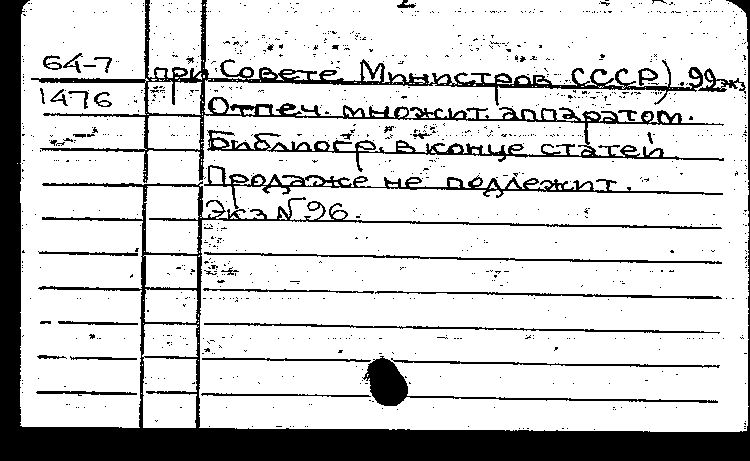 2
64-7 при Совете Министров СССР). 99 экз
1476 Отпеч. множит. аппаратом.
Библиогр. в конце статей
Продаже не подлежит.
Экз № 96.